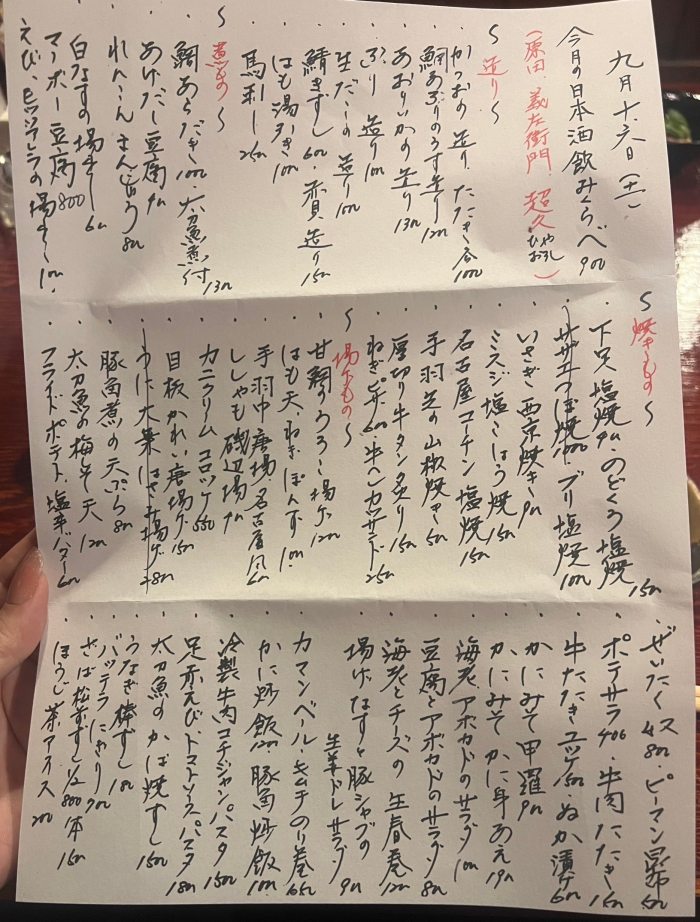 九月十六日(土)
今月の日本酒飲みくらべ 900
(原田、義左衛門、超久 ひやおろし)
〜造り〜
・かつおの造り、たたき 各1000
・鯛あぶりのうす造り 1200
・あおりいかの造り 1300
・ぶり造り 1000
・生だこの造り 1000
・鯖きずし 600・赤貝造り 1500
・はも湯引き 1000
・馬刺し
〜煮もの〜
・鯛あらだき 1000・太刀魚煮付 1300
・あげだし豆腐
・れんこんまんじゅう 800
・白なすの揚出し 600
・マーボー豆腐 800
・えび、モッツァレラの揚出し
〜焼きもの〜
・下足塩焼・のどぐろ塩焼 1500
・サザエつぼ焼・ブリ塩焼 1000
・いさぎ西京焼き
・ミスジ塩こしょう焼 1500
・名古屋コーチン塩焼 1500
・手羽先の山椒焼き 500
・厚切り牛タン炙り 1500
・ねぎピザ 600・牛ヘレカツサンド 2500
〜揚げもの〜
・甘鯛うろこ揚げ 1200
・はも天、ねぎぽんず
・手羽中唐揚、名古屋風 600
・ししゃも磯辺揚
・カニクリームコロッケ 550
・目板かれい唐揚げ 1500
・うに大葉はさみ揚げ 2800
・豚角煮の天ぷら 800
・太刀魚の梅しそ天 1200
・フライドポテト、塩辛バター 600
・ぜいたく 480・ピーマン昆布 500
・ポテサラ 400・牛肉たたき 1500
・牛たたきユッケ 1500・ぬか漬け 600
・かにみそ甲羅 900
・かにみそかに身あえ 1900
・海老、アボカドのサラダ 1000
・豆腐とアボカドのサラダ 800
・海老とチーズの生春巻 1200
・揚げなすと豚シャブの
生姜ドレサラダ 900
・カマンベール・キムチのり巻 650
・かに炒飯 1200 豚角炒飯 1000
・冷製牛肉コチジャンパスタ 1500
・足赤えび、トマトソースパスタ 1800
・太刀魚のかば焼ずし 1500
・うなぎ棒ずし
・バッテラにぎり 900
・さば松前ずし 1/2 800 一本 1500
・ほうじ茶アイス 200